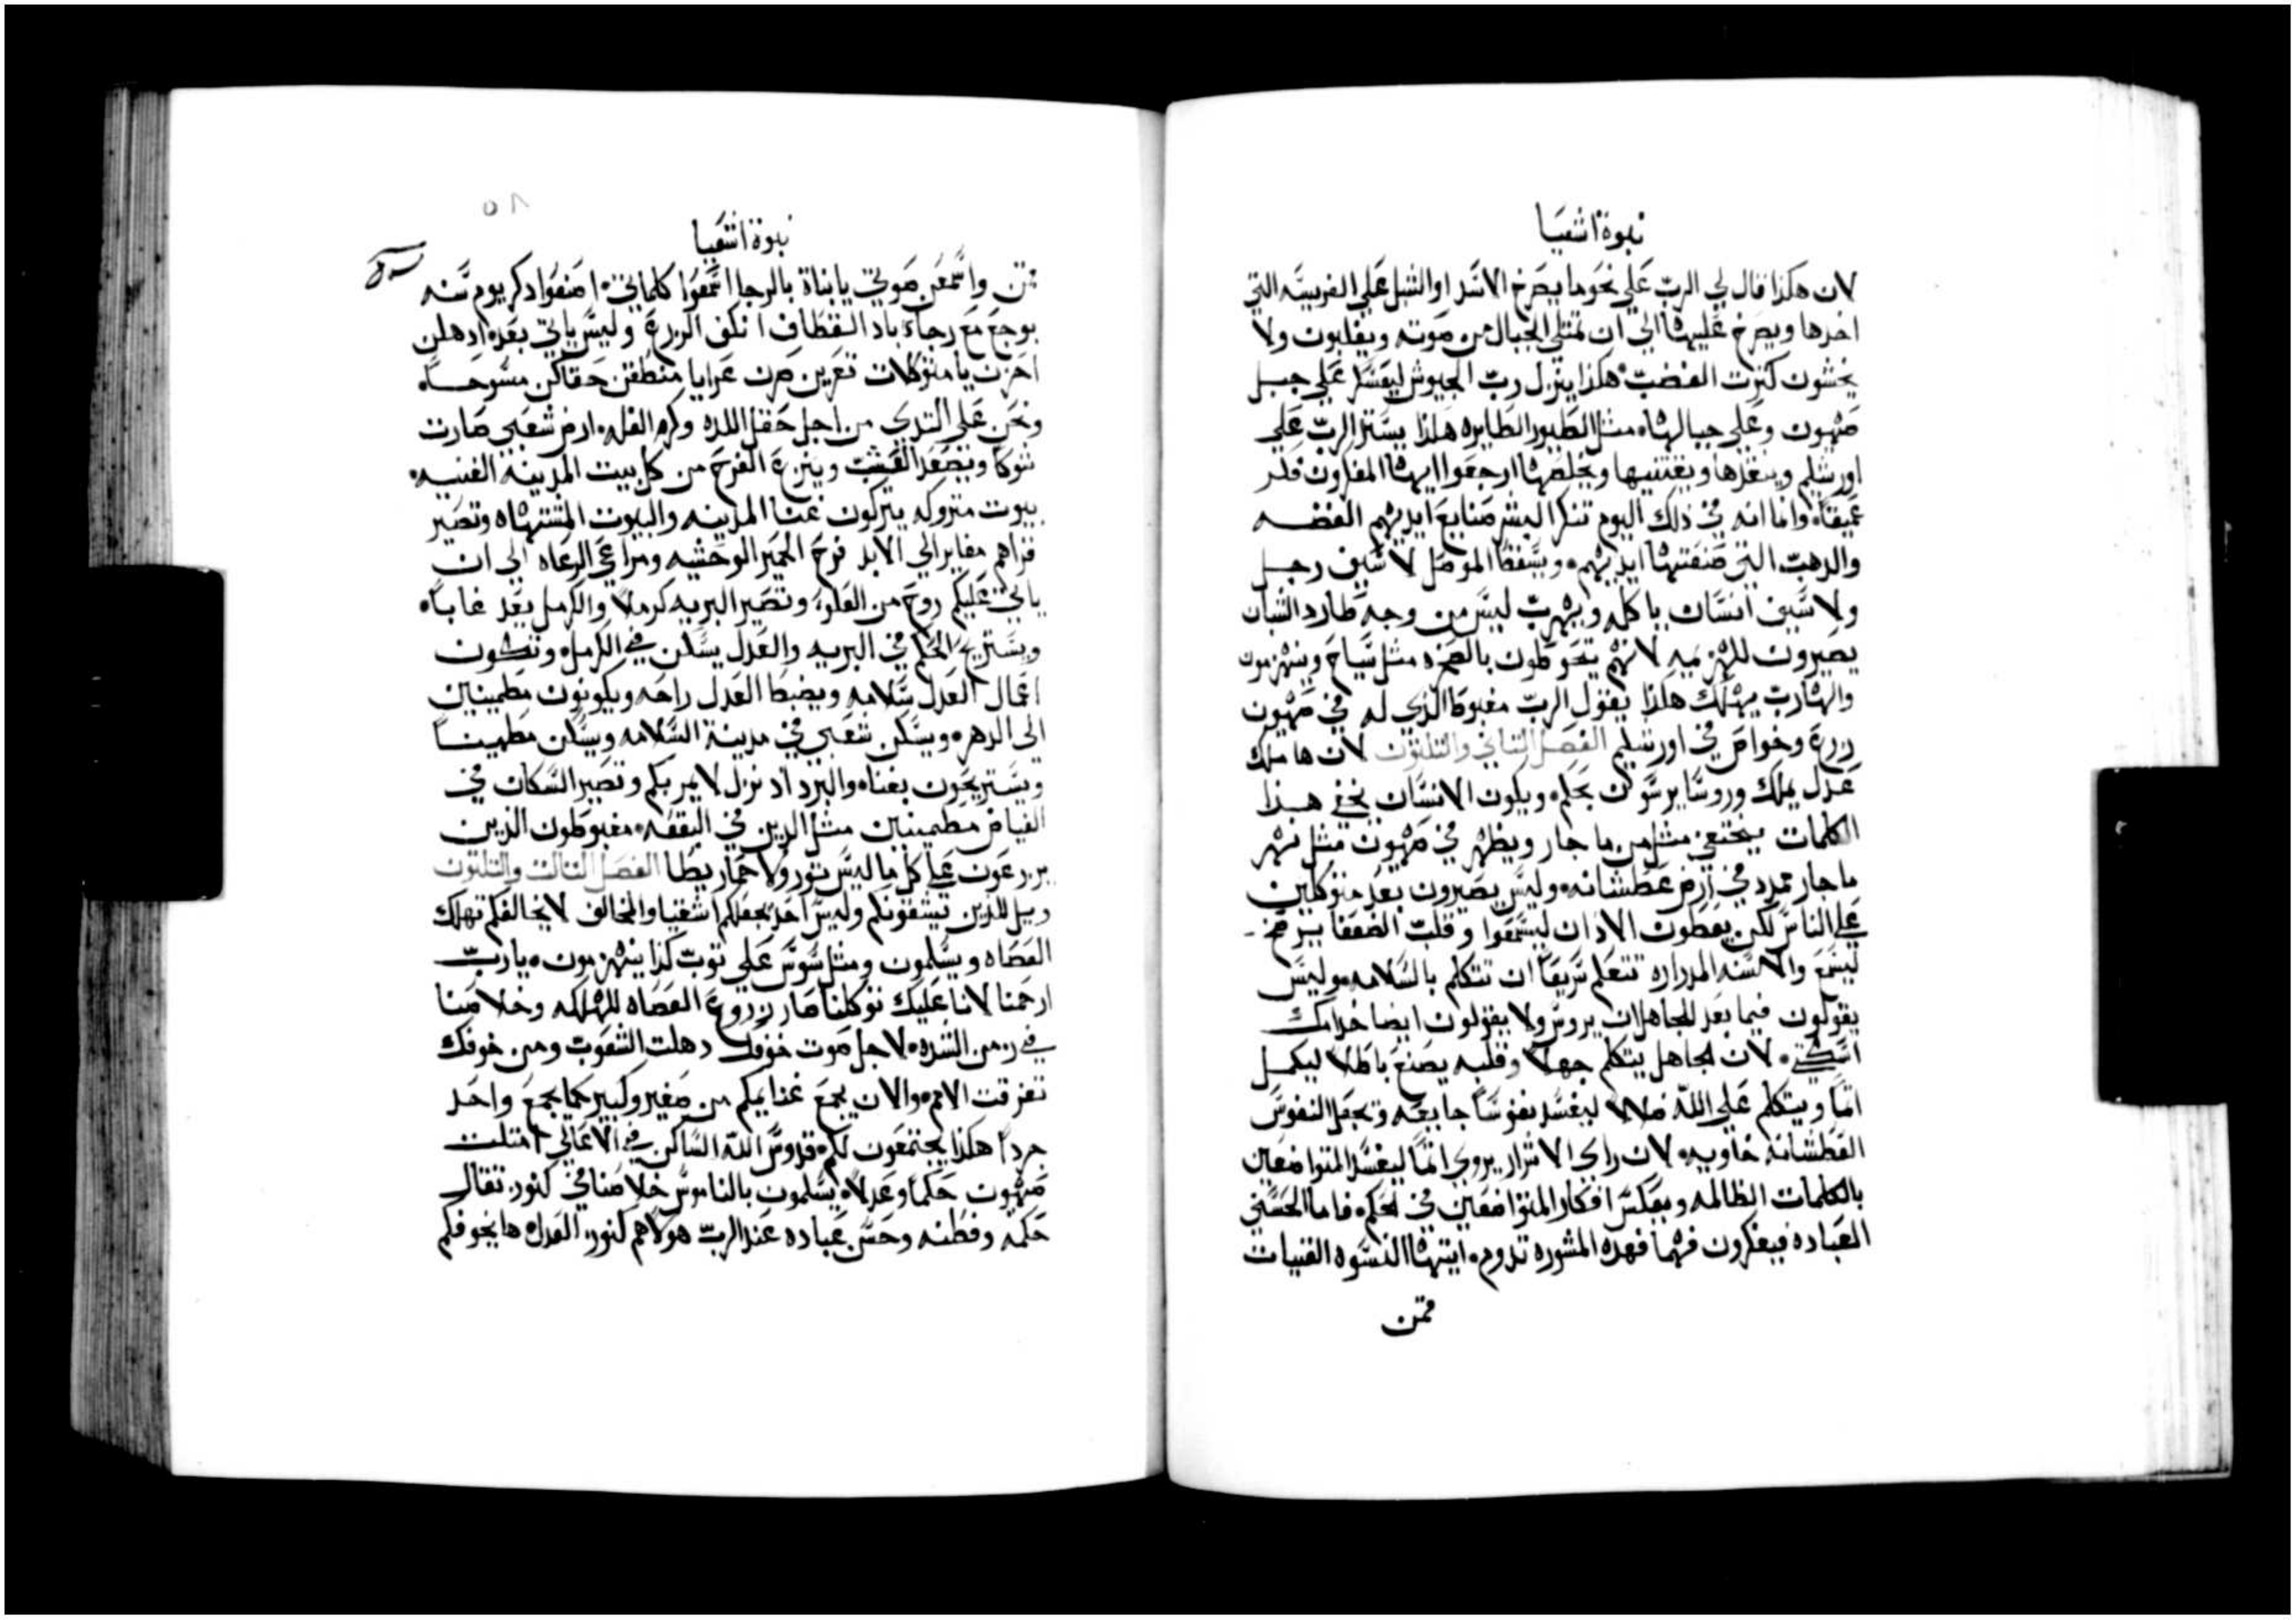 نبوة اشعيا
لان هكذا قال لي الربّ على نحو ما يصرخ الاسد او الشبل على الفريسه التي
اخدها ويصرخ عليها الي ان تمتلي الجبال من صوته ويغلبون ولا
يخشون كترت الغضب هكذا ينزل ربّ الجيوش ليعسكر على جبل
صهيون وعلى جبالها مثل الطيور الطايره هكذا يستر الربّ على
اورشليم وينقدها ويقتنيها ويخلصها ارجعوا ايها المفكرون فكر
عميقا وانما انه في ذلك اليوم تنكر البشر صنايع ايديهم الفضه
والدهب التي صنعتها ايديهم ويسقط الموصل لا سيف رجل
ولا سيف انسان ياكله ويهرب ليس من وجه طارد الشبان
يصيرون للهزيمه لانهم يتحوطون بالصخره مثل سياج وينهزمون
والهارب يهلك هكذا يقول الربّ مغبوط الذي له في صهيون
زرع وخواص في اورشليم الفصل التاني والتلتون لان ها ملك
عدل يملك وروسا يرسون بحكم ويكون الانسان يخفي هذا
الكلمات يختفي مثل من ما جار ويظهر في صهيون مثل نهر
ما جار ممدد في ارض عطشانه وليس يصيرون بعد متوكلين
على الناس لكن يعطون الادان ليسمعوا وقلب الضعفا يزمخ
ليسمع والالسنه المدراره تتعلم سريعا ان تتكلم بالسلامه وليس
يقولون فيما بعد للجاهل ان يروس ولا يقولون ايضا خدامك
اسكتي لان الجاهل يتكلم جهلا وقلبه يصنع باطلا ليكمل
اتما ويتكلم على الله ضلالا ليفسد نفوسا جايعه وتجعل النفوس
العطشانه خاويه لان راي الاشرار يروي اتما ليفسد المتواضعين
بالكلمات الظالمه ويعكس افكار المتواضعين في الحكم فاما الحسني
العباده فيفكرون فهما فهده المشوره تدوم ايتها النسوه الغنيات
قمن
نبوة اشعيا
قمن واسمعن صوتي يابناة بالرجا اسمعوا كلماتي اصنعوا دكر يوم سنه
بوجع مع رجاء باد القطاف انكف الزرع وليس ياتي بعد ادهلن
احزن يا متوكلات تعرين صرن عرايا منطقن حقاكن مسوحا
ونحن على التدي من اجل حقل اللده وكرم الغله ارض شعبي صارت
شوكا وتصعد العشب وينزع الفرح من كل بيت المدينه الغنيه
بيوت متروكه يتركون غنا المدينه والبيوت المشتهاه وتصير
قراهم مغاير الي الابد فرح الحمير الوحشيه ومراعي الرعاه الي ان
ياتي عليكم روح من العلو وتصير البريه كرملا والكرمل يعد غابا
ويستريح الحكم في البريه والعدل يسكن في الكرمل وتكون
اعمال العدل سلامه ويضبط العدل راحه ويكونون مطمينين
الى الدهر ويسكن شعبي في مدينة السلامه ويسكن مطمينا
ويستريحون بغناه والبرد اد نزل لا يمر بكم وتصير السكان في
الغياض مطمينين مثل الدين في البقعه مغبوطون الذين
يزرعون على كل ما ليس تور ولا حمار يطا الفصل التالت والتلتون
ويل للذين يشقونكم وليس احد يجعلكم اشقيا والمخالف لا يخالفكم تهلك
العصاه ويسلمون ومثل سوس على توب كدا ينهزمون ياربّ
ارحمنا لانا عليك توكلنا صار زروع العصاه للهلكه وخلاصنا
في زمن الشده لاجل صوت خوفك دهلت الشعوب ومن خوفك
تفرقت الامم والان يجمع غنايمكم من صغير وكبير كما يجمع واحد
جردا هكذا يجتمعون لكم قدوس الله الساكن في الاعالي امتلت
صهيون حكما وعدلا يسلمون بالناموس خلاصنا في كنوز تقال
حكمه وفطنه وحسن عباده عند الربّ هولاهم كنوز العدل ها بخوفكم